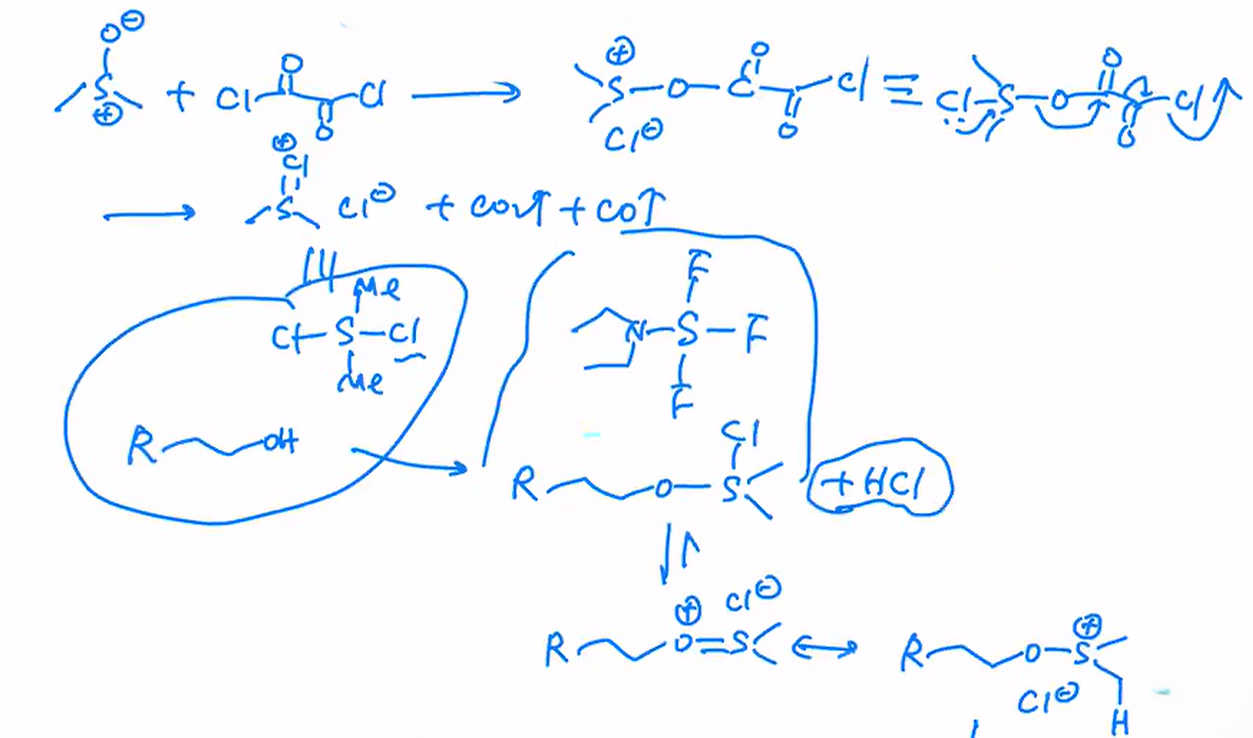 O⊖
S⊕ + Cl O O Cl → ⊕ S—O—C O O Cl Cl⊖ ≡ Cl—S—O O O Cl
→ ⊕Cl S Cl⊖ + CO2↑ + CO↑
Me
Cl—S—Cl
Me
F
N—S—F
F
R OH →
Cl
R O—S + HCl
⊕ Cl⊖
R O=S ↔ R O—S⊕
Cl⊖ H